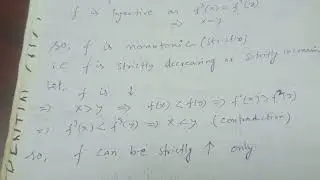 f is injective as f³(x) = f³(y)
⇒ x = y
So, f is monotonic (strict)
i.e f is strictly decreasing or strictly increasing
Let, f is ↓
⇒ x > y ⇒ f(x) < f(y) ⇒ f²(x) > f²(y)
⇒ f³(x) < f³(y) ⇒ x < y (contradiction)
So, f can be strictly ↑ only